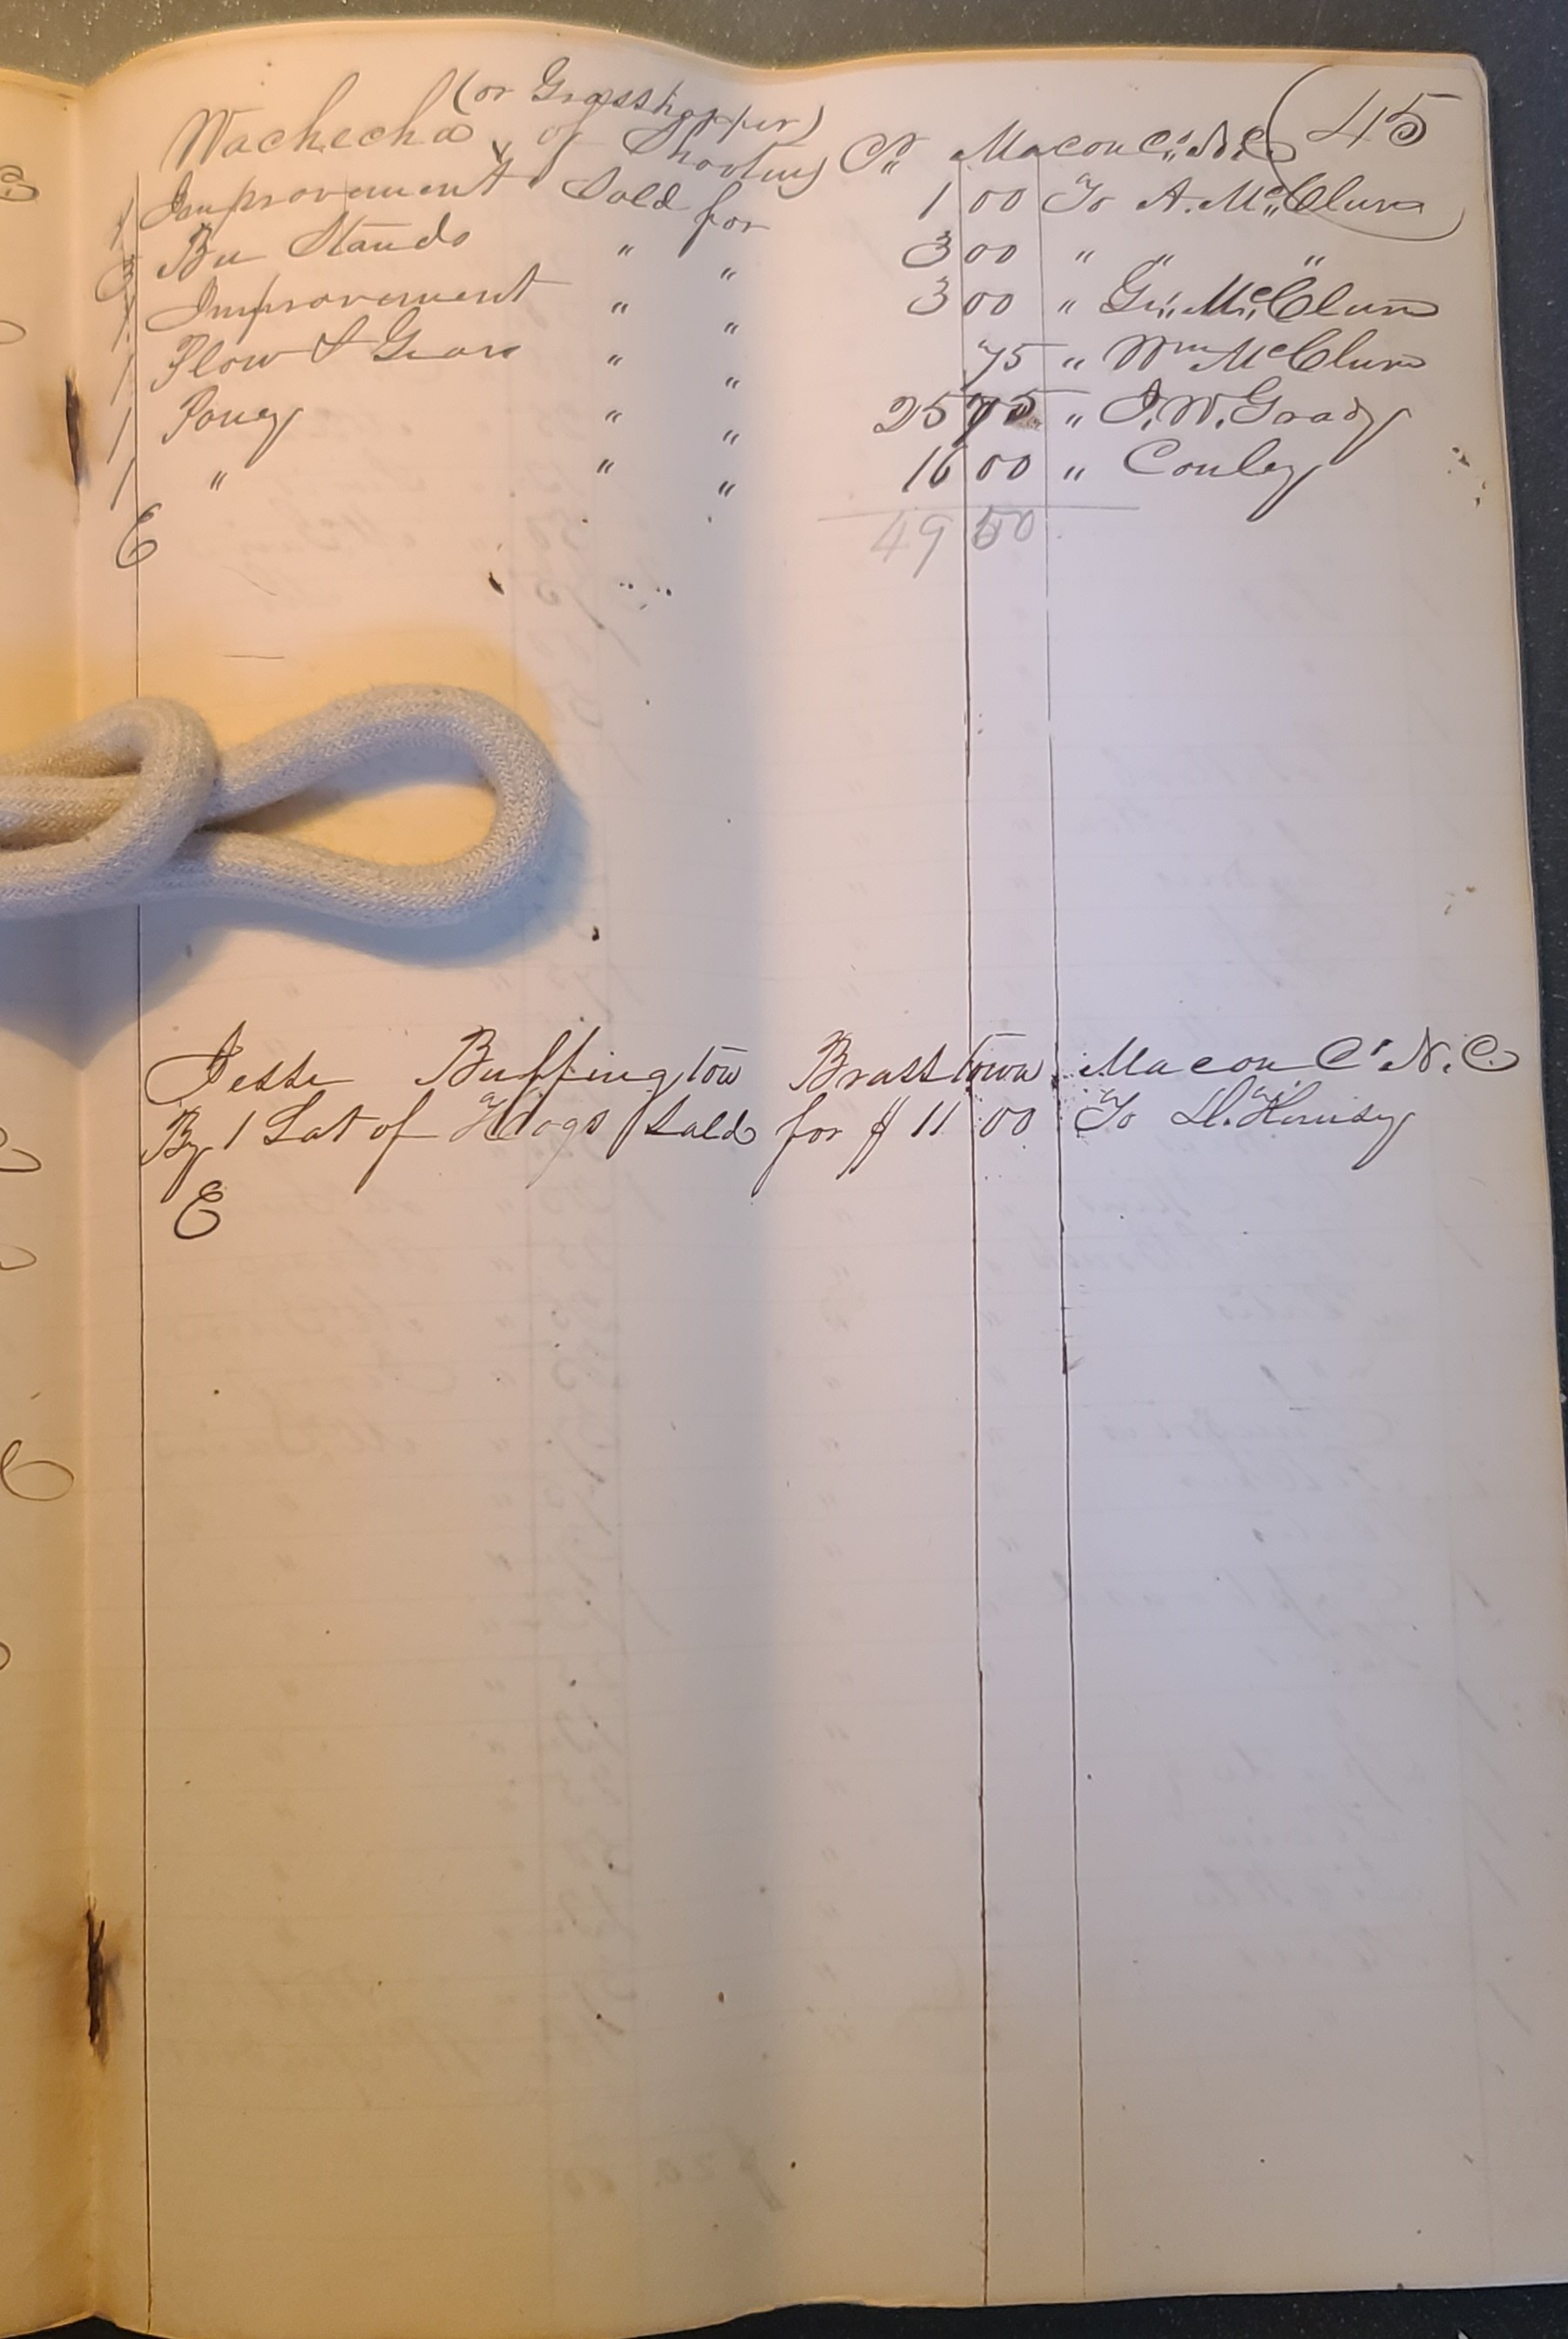 45
(or Grasshopper)
Wachecha, of Shooting Cr. Macon Co. N.C.
1 Improvement Sold for 1 00 To A. McClure
3 Bee Stands " " 3 00 " " "
1 Improvement " " 3 00 " G. McClure
1 Plow & Gears " " 75 " Wm McClure
1 Poney " " 25 75 " J. W. Grady
1 " " " 16 00 " Conley
49 50
E
Jesse Buffington Brasstown Macon Co N.C.
By 1 Lot of Hogs Sold for $ 11 00 To H. Hensey
E